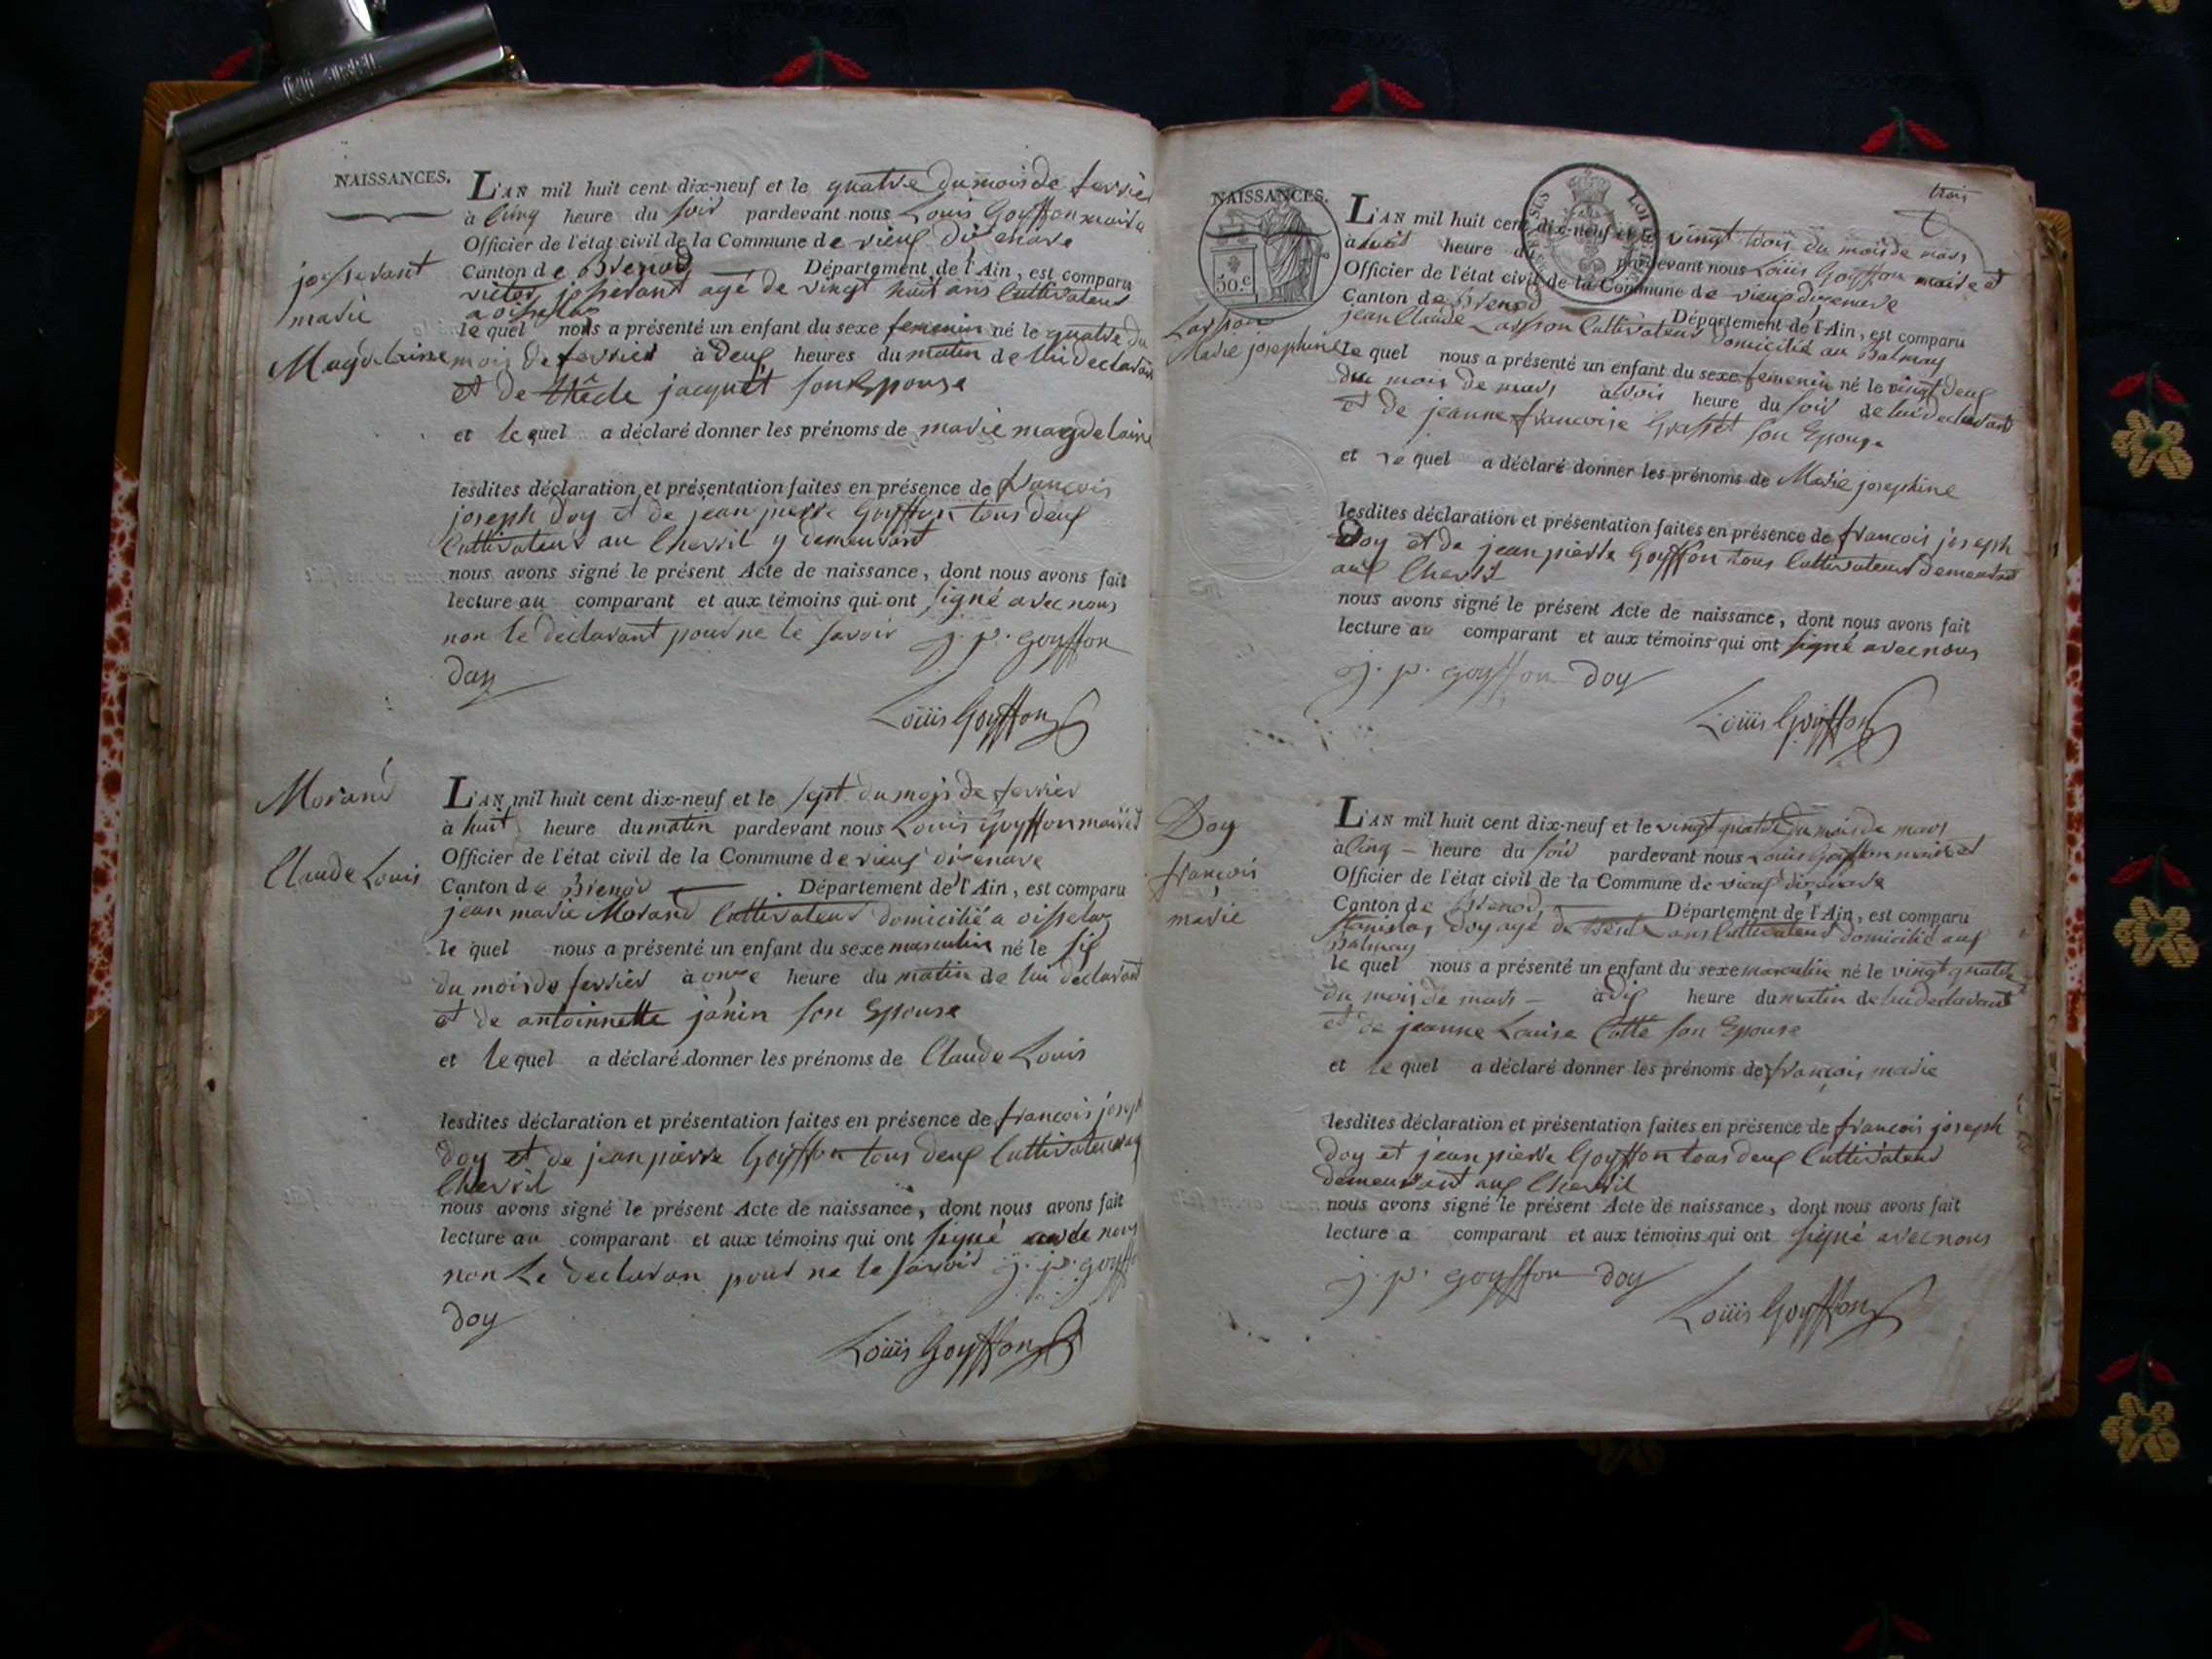 NAISSANCES.
L'AN mil huit cent dix-neuf et le quatre du mois de fevrier
à cinq heure du soir pardevant nous Louis Goyffon maire
Officier de l'état civil de la Commune de vieux d'izenave
Canton de Brenod Département de l'Ain, est comparu
josserant
marie
Magdelaine
victor josserant agé de vingt huit ans cultivateur
a oisselas
le quel nous a présenté un enfant du sexe femenin né le quatre du
mois de fevrier à deux heures du matin de lui declarant
et de thêcle jacquet son Epouse
et le quel a déclaré donner les prénoms de marie magdelaine
lesdites déclaration et présentation faites en présence de françois
joseph doy et de jean pierre Goyffon tous deux
Cultivateurs au Chevril y demeurant
nous avons signé le présent Acte de naissance, dont nous avons fait
lecture au comparant et aux témoins qui ont signé avec nous
non le declarant pour ne le savoir j. p. goyffon
doy
Loüis Goyffon
Morand
Claude Louis
L'AN mil huit cent dix-neuf et le sept du mois de fevrier
à huit heure du matin pardevant nous Louis Goyffon maire et
Officier de l'état civil de la Commune de vieux d'izenave
Canton de Brenod Département de l'Ain, est comparu
jean marie Morand Cultivateur domicilié a oisselaz
le quel nous a présenté un enfant du sexe masculin né le six
du mois de fevrier à onze heure du matin de lui declarant
et de antoinnette janin son Epouse
et le quel a déclaré donner les prénoms de Claude Louis
lesdites déclaration et présentation faites en présence de françois joseph
doy et de jean pierre Goyffon tous deux Cultivateur au
Chevril
nous avons signé le présent Acte de naissance, dont nous avons fait
lecture au comparant et aux témoins qui ont signé nous
non Le declaran pour ne le savoir j. p. goyffo
doy
Loüis Goyffon
trois
NAISSANCES.
50.c
L'AN mil huit cent dix-neuf et le vingt trois du mois de mars
à heure du pardevant nous Loüis Goyffon maire et
Officier de l'état civil de la Commune de vieux d'izenave
Canton de Brenod Département de l'Ain, est comparu
Lasson
Marie josephine
jean Claude Lasson Cultivateur domicilié au Balmay
le quel nous a présenté un enfant du sexe femenin né le vingt deux
du mois de mars à trois heure du soir de lui declarant
et de jeanne françoise Grasset son Epouse
et le quel a déclaré donner les prénoms de Marie josephine
lesdites déclaration et présentation faites en présence de françois joseph
Doy et de jean pierre Goyffon tous Cultivateurs demeurant
aux Chevril
nous avons signé le présent Acte de naissance, dont nous avons fait
lecture au comparant et aux témoins qui ont signé avec nous
j. p. goyffon doy
Loüis Goyffon
Doy
françois
marie
L'AN mil huit cent dix-neuf et le vingt quatre du mois de mars
à cinq heure du soir pardevant nous Louis Goyffon maire et
Officier de l'état civil de la Commune de vieux d'izenave
Canton de Brenod Département de l'Ain, est comparu
Stanislas doy agé de trente ans Cultivateur domicilié aux
Balmay
le quel nous a présenté un enfant du sexe masculin né le vingt quatre
du mois de mars à dix heure du matin de lui declarant
et de jeanne Louise Cotte son Epouse
et le quel a déclaré donner les prénoms de françois marie
lesdites déclaration et présentation faites en présence de françois joseph
doy et jean pierre Goyffon tous deux Cultivateur
demeurant aux Chevril
nous avons signé le présent Acte de naissance, dont nous avons fait
lecture a comparant et aux témoins qui ont signé avec nous
j. p. goyffon doy
Loüis Goyffon